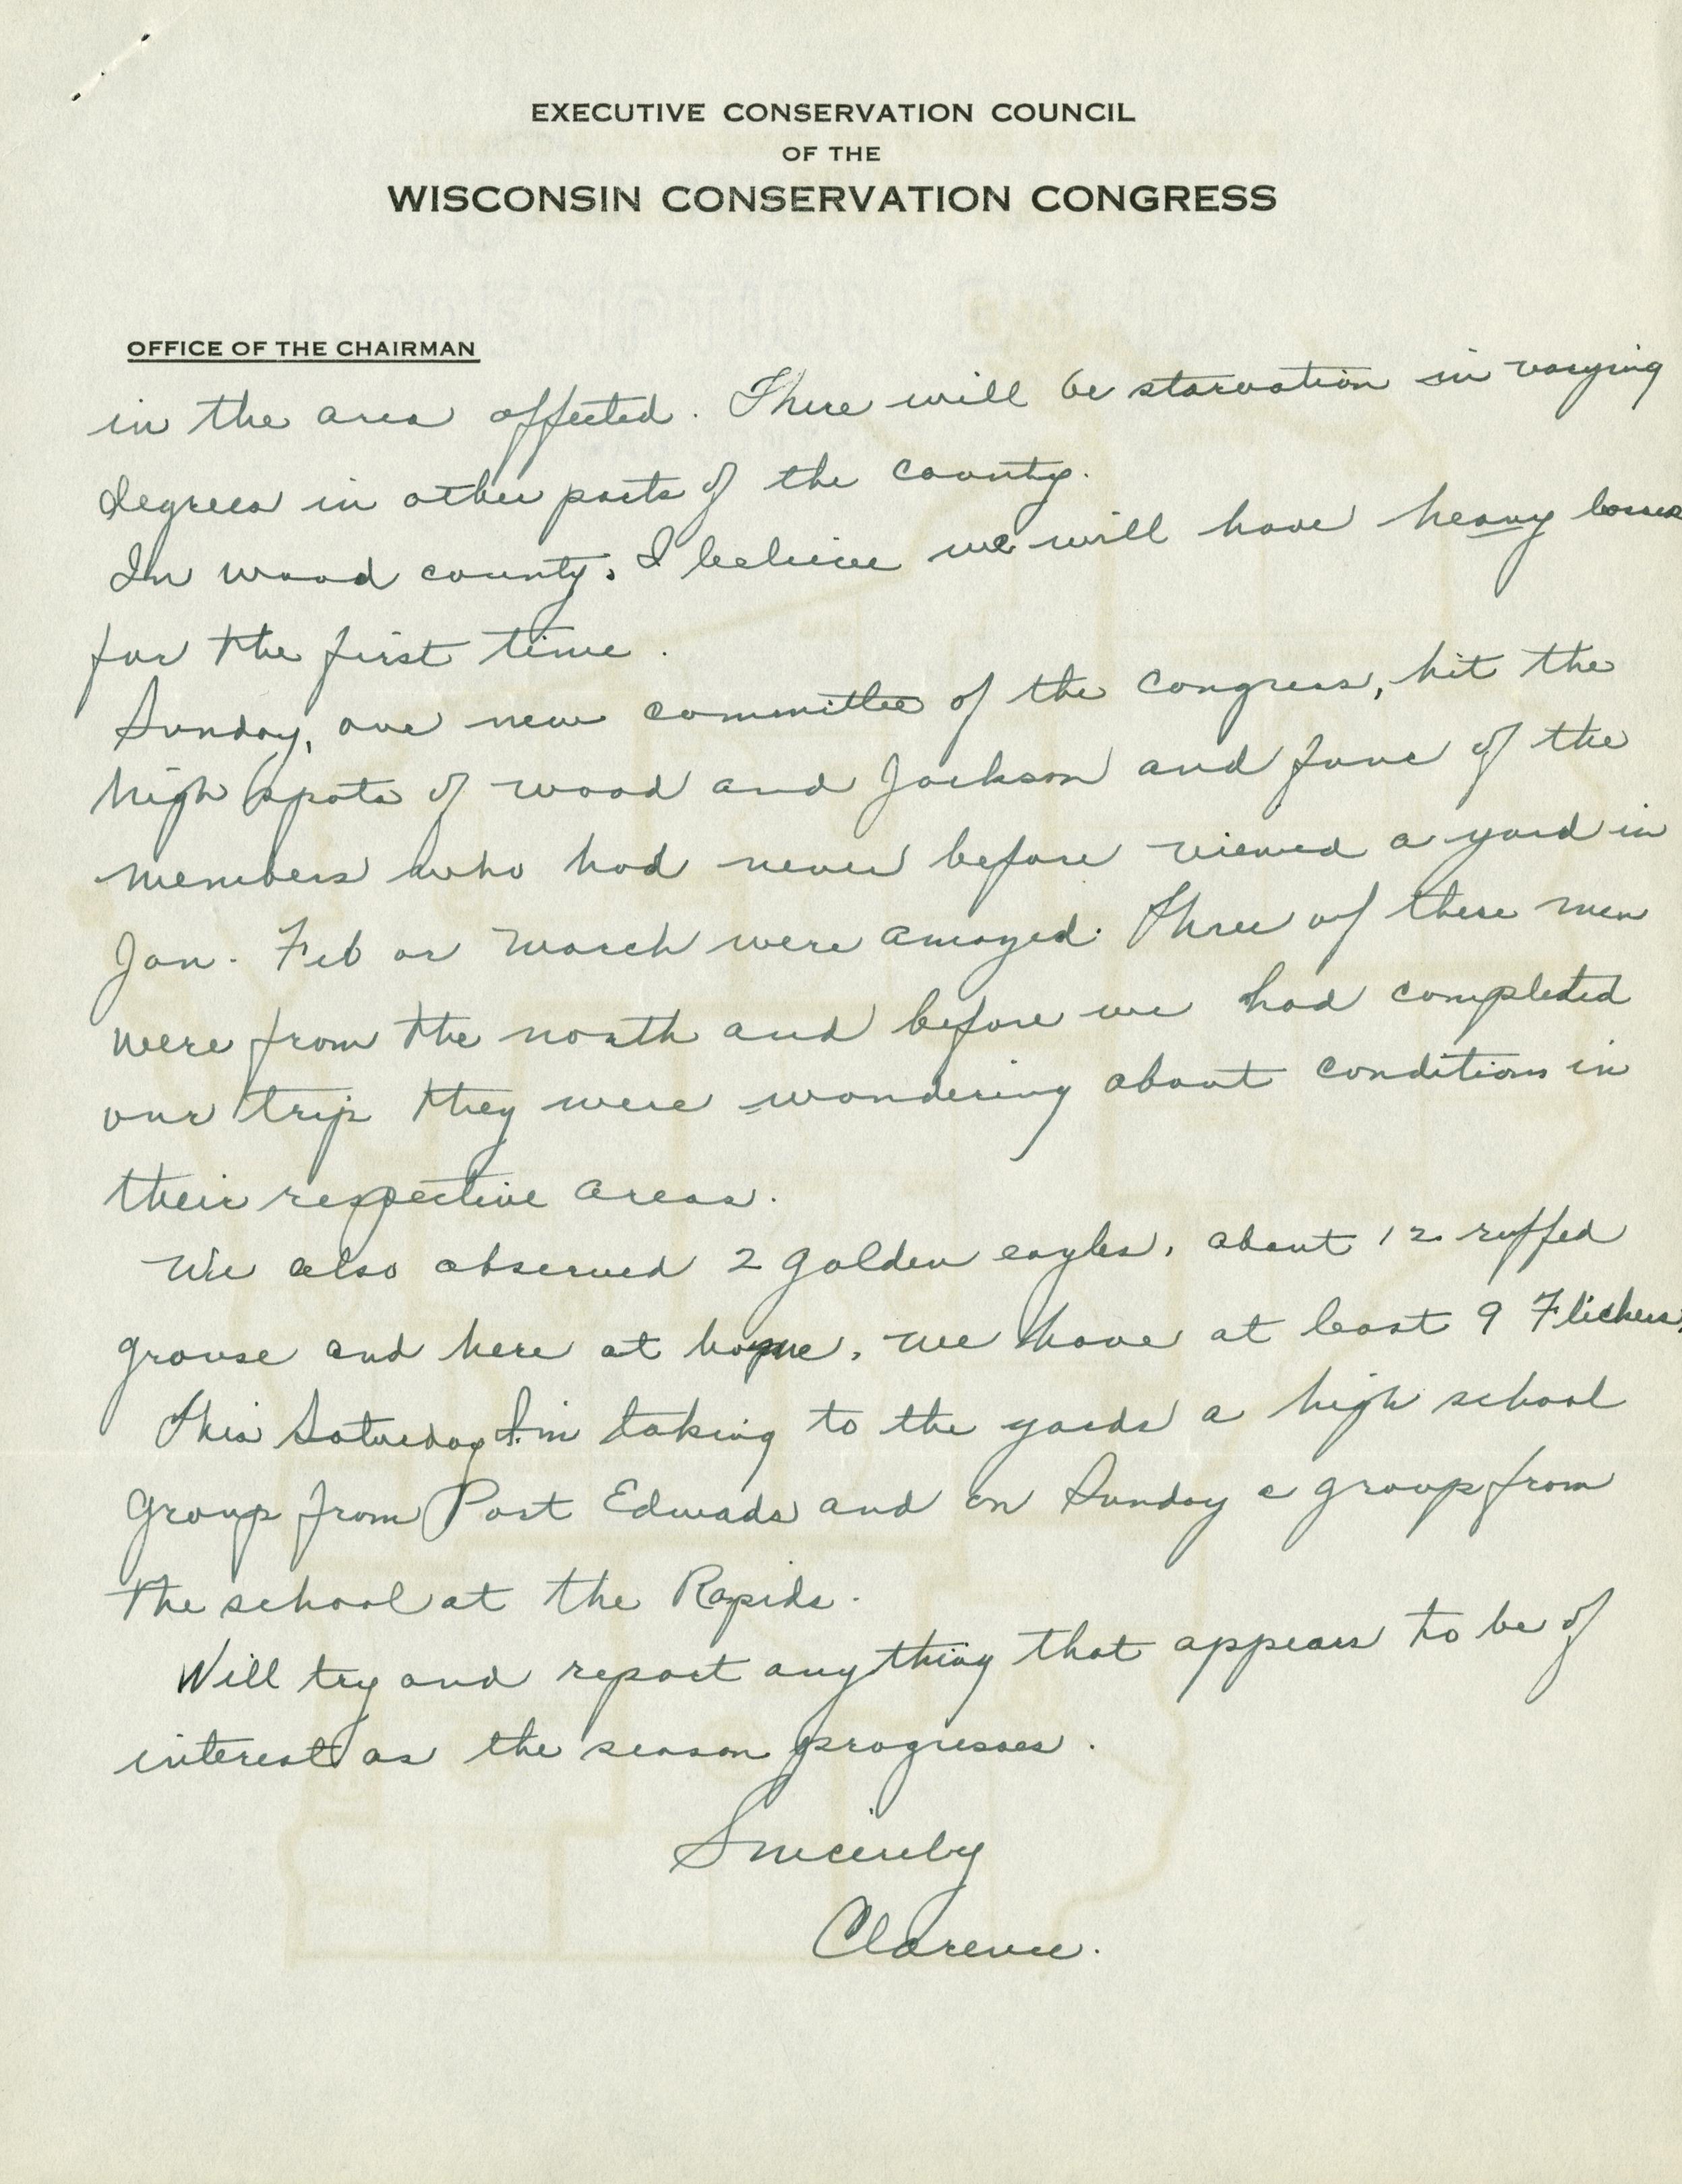 EXECUTIVE CONSERVATION COUNCIL
OF THE
WISCONSIN CONSERVATION CONGRESS
OFFICE OF THE CHAIRMAN
in the area affected. There will be starvation in varying
degrees in other parts of the county.
In wood county, I believe we will have heavy losses
for the first time.
Sunday, our new committee of the congress, hit the
high spots of wood and Jackson and four of the
members who had never before viewed a yard in
Jan. Feb or March were amazed. Three of these men
were from the north and before we had completed
our trip they were wondering about conditions in
their respective areas.
We also observed 2 golden eagles, about 12 ruffed
grouse and here at home, we have at least 9 Flickers.
This Saturday I'm taking to the yards a high school
group from Port Edwads and on Sunday a group from
the school at the Rapids.
Will try and report anything that appears to be of
interest as the season progresses.
Sincerely
Clarence.